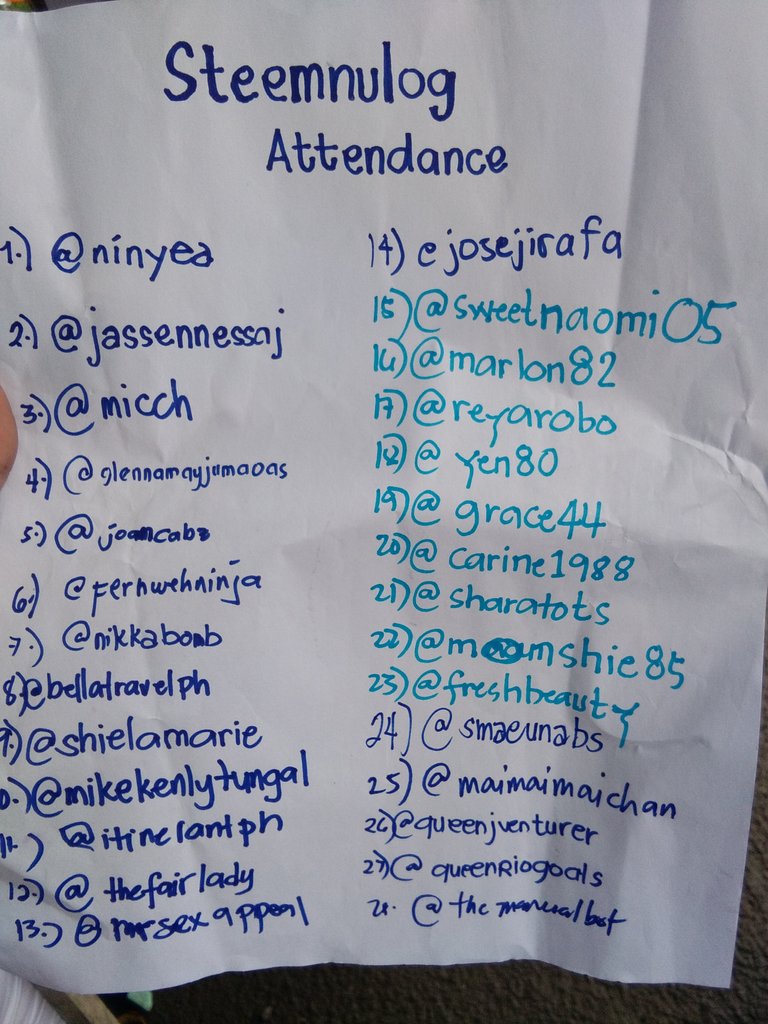 Steemnulog
Attendance
1.) @ninyea
2.) @jassennessaj
3.) @micch
4.) @glennamayjumaoas
5.) @joancabz
6.) @fernwehninja
7.) @nikkabomb
8) @bellatravelph
9.) @shielamarie
0.) @mikekenlytungal
11.) @itinerantph
12.) @ thefairlady
13.) @ mrsexappeal
14) @josejirafa
15) @sweetnaomi05
16) @marlon82
17) @reyarobo
18) @ yen80
19) @ grace44
20) @ carine1988
21) @ sharatots
22) @momshie85
23) @freshbeauty
24) @ smaeunabs
25) @ maimaimaichan
26) @queenjventurer
27) @ queenRiogoals
28. @ the manualbot